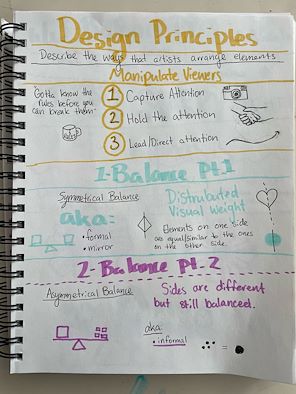 Design Principles
Describe the ways that artists arrange elements
Manipulate Viewers
Gotta know the
rules before you
can break them"
1 Capture Attention
2 Hold the attention
3 Lead/Direct attention
1-Balance Pt.1
Symmetrical Balance
aka:
• formal
• mirror
Distrubuted
Visual Weight
Elements on one side
are equal/similar to the ones
on the other side.
2-Balance Pt.2
Asymmetrical Balance
Sides are different
but still balanced.
aka:
• informal
=